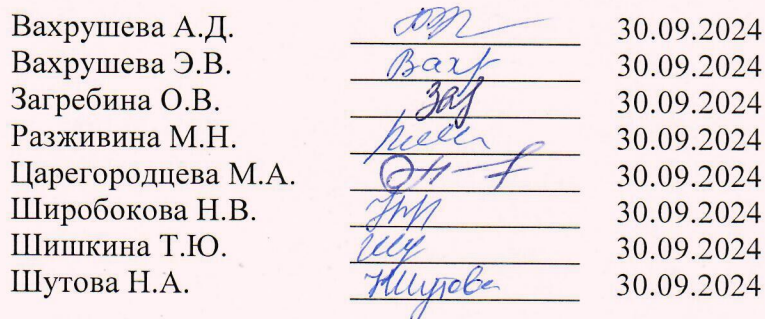 Вахрушева А.Д. 30.09.2024
Вахрушева Э.В. Вахр 30.09.2024
Загребина О.В. Заг 30.09.2024
Разживина М.Н. 30.09.2024
Царегородцева М.А. 30.09.2024
Широбокова Н.В. 30.09.2024
Шишкина Т.Ю. 30.09.2024
Шутова Н.А. НШутова 30.09.2024